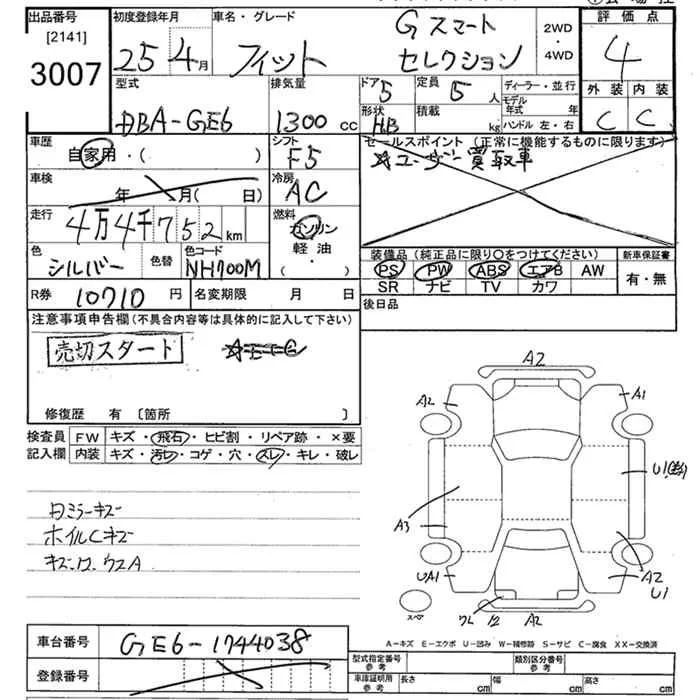 出品番号
[2141]
3007
初度登録年月
25年4月
車名・グレード
フィット
Gスマート
セレクション
2WD
・
4WD
評価点
4
外装 内装
C C
型式
DBA-GE6
排気量
1300cc
ドア
5
定員
5人
形状
HB
積載
kg
ディーラー・並行
モデル年式 年
ハンドル 左・右
車歴
自家用・( )
シフト
F5
セールスポイント(正常に機能するものに限ります)
☆ユーザー買取車
車検
年 月( 日)
冷房
AC
走行
4万4千752km
燃料
ガソリン
軽油・
( )
色
シルバー
色替
色コード
NH700M
装備品(純正品に限り○をつけてください)
PS PW ABS エアB AW
SR ナビ TV カワ
新車保証書
有・無
R券 10710円
名変期限 月 日
後日品
注意事項申告欄(不具合内容等は具体的に記入して下さい)
売切スタート
修復歴 有 〔箇所 〕
検査員
記入欄
FW キズ・飛石・ヒビ割・リペア跡・×要
内装 キズ・汚レ・コゲ・穴・スレ・キレ・破レ
ホイルCキズ
A2
A2
A1
A3
UA1
A2
U1
A2
スペア
A-キズ E-エクボ U-凹み W-補修跡 S-サビ C-腐食 XX-交換済
車台番号
GE6-1744038
登録番号
型式指定番号
参考
類別区分番号
参考
車庫証明用
参考
長さ cm
幅 cm
高さ cm